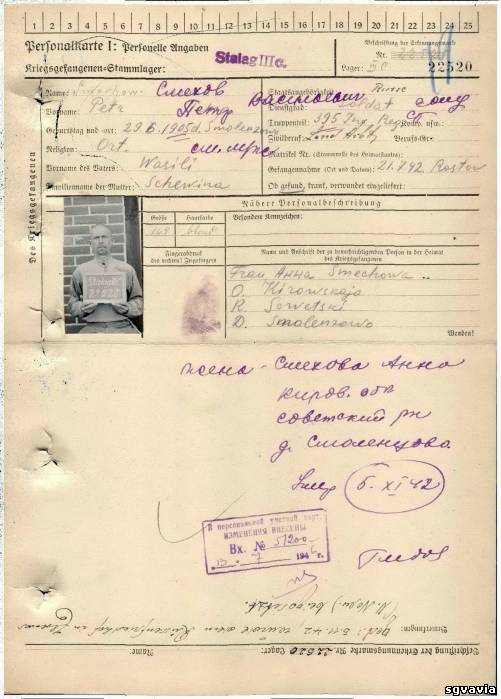 1 2 3 4 5 6 7 8 9 10 11 12 13 14 15 16 17 18 19 20 21 22 23 24 25
Personalkarte I: Personelle Angaben
Kriegsgefangenen-Stammlager: Stalag IIIc.
Beschriftung der Erkennungsmarke
Nr. 22520
Lager:
Des Kriegsgefangenen
Name: Смехов
Vorname: Petr Петр Васильевич
Geburtstag und -ort: 29.6.1905 d. Smolenzowo
Religion: Ort.
Vorname des Vaters: Wasili
Familienname der Mutter: Schewnina
Staatsangehörigkeit: Russe
Dienstgrad: Soldat солд
Truppenteil: 395 Inf. Reg. Komp. usw.
Zivilberuf: Berufs-Gr.
Matrikel Nr. (Stammrolle des Heimatstaates)
Gefangennahme (Ort und Datum) 21.7.42 Rostow
Ob gefund, krank, verwundet eingeliefert:
Nähere Personalbeschreibung
Größe
Haarfarbe
Besondere Kennzeichen:
169
blond
Fingerabdruck
des rechten! Zeigefingers
Name und Anschrift der zu benachrichtigenden Person in der Heimat
des Kriegsgefangenen
Stalag IIIC
22520
Frau Anna Smechowa
O. Kirowskaja
R. Sowetski
D. Smolenzowo
Wenden!
жена - Смехова Анна
Киров. обл
Советский рн
д. Смоленцова
Умер 5.XI 42
В персональной учетной карт.
ИЗМЕНЕНИЯ ВНЕСЕНЫ
Вх. № 51200
13 7 1946 г.
Bemerkungen:
Beschriftung der Erkennungsmarke Nr. 22520 Lager:
Name:
sgvavia